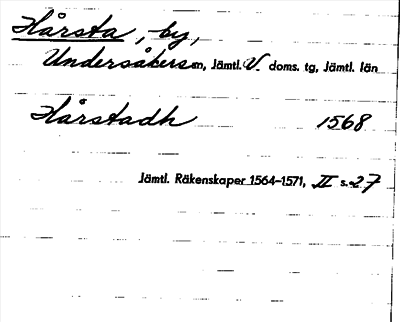 Hårsta, by,
Undersåkers sn, Jämtl. V. doms. tg, Jämtl. län
Hårstadh 1568
Jämtl. Räkenskaper 1564-1571, II s. 27